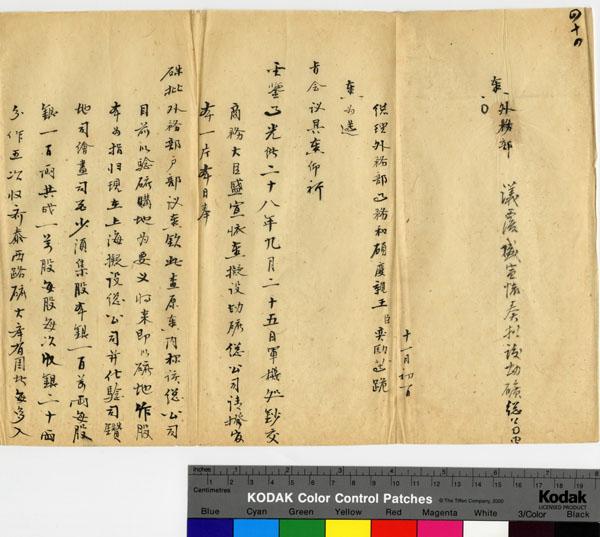 四十四
奏 外務部 議覆盛宣懷奏擬設勘礦總公司由
十一月初一日
總理外務部事務和碩慶親王臣奕劻等跪
奏為遵
旨會議具奏仰祈
聖鑒事光緒二十八年九月二十五日軍機處鈔交
商務大臣盛宣懷奏擬設勘礦總公司請撥官
本一片奉日奉
硃批外務部戶部議奏欽此查原奏內稱該總公司
目前以驗礦購地為要義將來即以礦地作股
本為指歸現在上海擬設總公司並化驗司鑽
地司繪畫司至少須集股本銀一百萬兩每股
銀一百兩共成一萬股每股每次收銀二十兩
分作五次收齊泰西路礦大率有國此每多入
inches 1 2 3 4 5 6 7 8
Centimetres 1 2 3 4 5 6 7 8 9 10 11 12 13 14 15 16 17 18 19
KODAK Color Control Patches © The Tiffen Company, 2000
Kodak
LICENSED PRODUCT
Blue Cyan Green Yellow Red Magenta White 3/Color Black